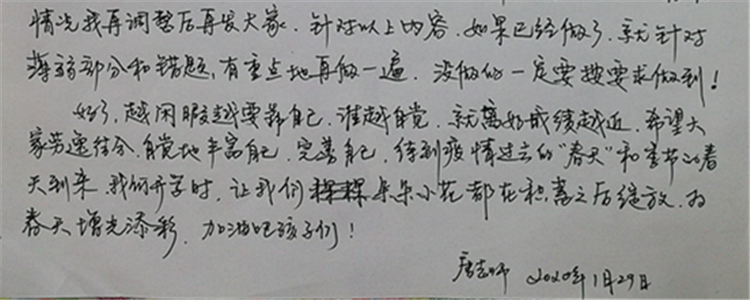 情况我再调整后再发大家.针对以上内容,如果已经做了,就针对
薄弱部分和错题,有重点地再做一遍,没做的一定要按要求做到!
好了,越闲暇越要靠自己,谁越自觉,就离好成绩越近,希望大
家劳逸结合,自觉地丰富自己,完善自己,待到疫情过去的“春天”和季节的春
天到来,我们开学时,让我们 朵朵小花都在积蓄之后绽放,为
春天增光添彩,加油吧孩子们!
老师 2020年1月29日